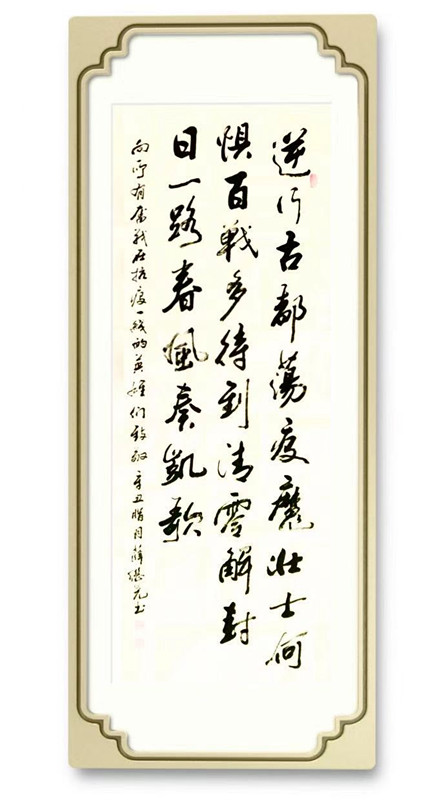 逆行古都荡疫魔壮士何
惧百戰多待到清零解封
日一路春風奏凱歌
向所有奮戰在抗疫一线的英雄们致敬辛丑腊月薛堪元书